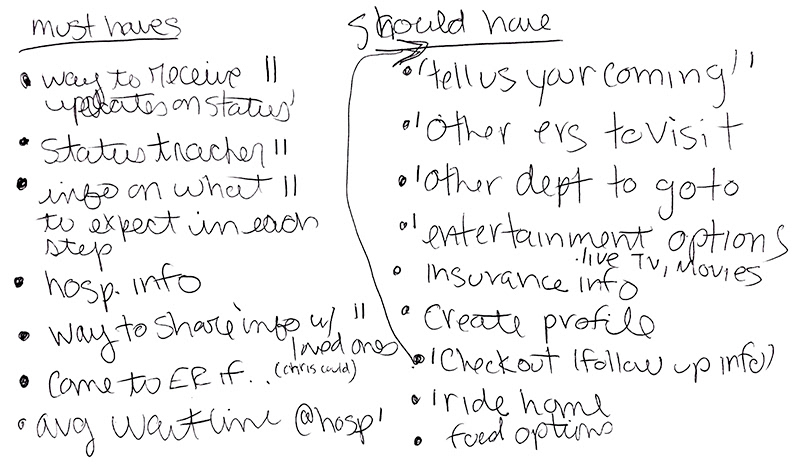 must haves
• way to receive ||
updates on status'
• status tracker ||
• info on what ||
to expect in each
step
• hosp. info
• way to share info w/ ||
loved ones
• Come to ER if...
(chris could)
• avg wait time @hosp '
should have
• 'tell us your coming' '
• ' Other ers to visit
• ' Other dept to go to
• ' entertainment options
• live TV, Movies
• insurance info
• Create profile
• ' Checkout (follow up info)
• ' ride home
• food options